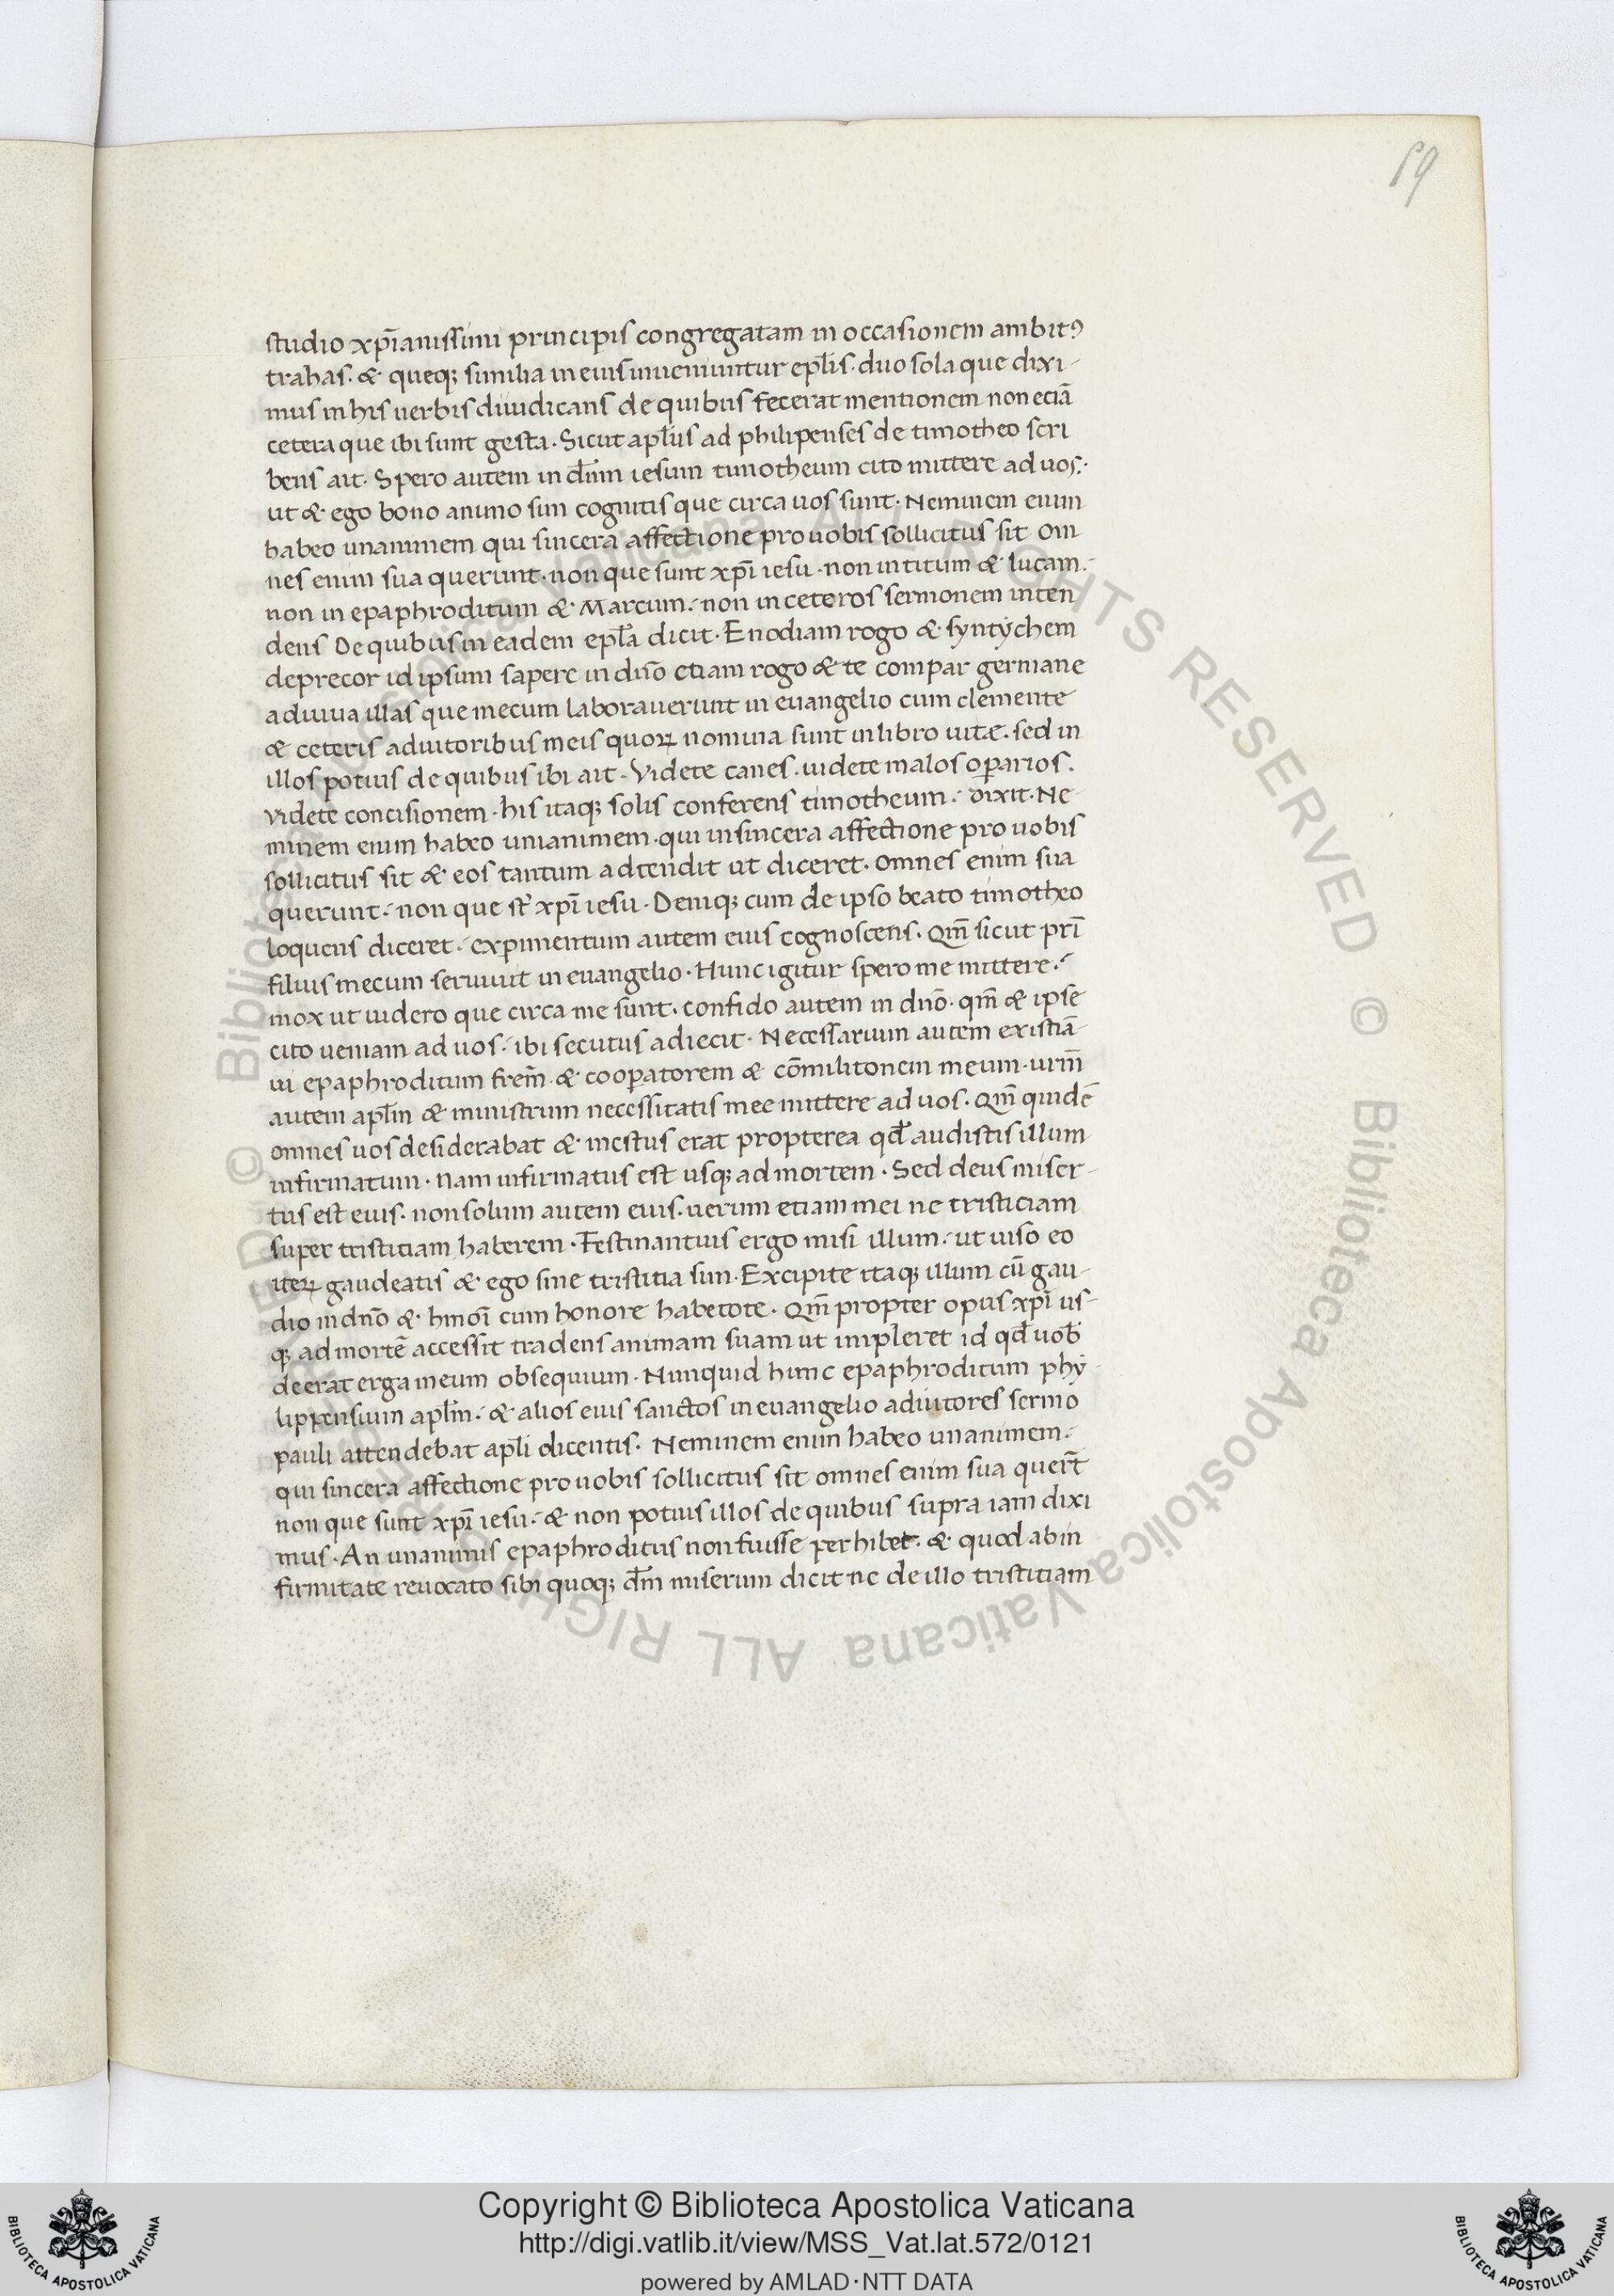 59
studio xp̄ianissimi principis congregatam in occasionem ambitꝰ
trahas. & queq; similia in eius inueniuntur ep̄lis. duo sola que dixi-
mus in his uerbis diiudicans de quibus fecerat mentionem non eciā
cetera que ibi sunt gesta. Sicut ap̄lus ad philipenses de timotheo scri
bens ait. Spero autem in dn̄m iesum timotheum cito mittere ad uos:
ut & ego bono animo sim cognitis que circa uos sunt. Neminem enim
habeo unanimem qui sincera affectione pro uobis sollicitus sit om
nes enim sua querunt. non que sunt xp̄i iesu. non in titum & lucam.
non in epaphroditum & Marcum. non in ceteros sermonem inten
dens De quibus in eadem ep̄la dicit. Enodiam rogo & syntychem
deprecor id ipsum sapere in dn̄o etiam rogo & te compar germane
adiuua illas que mecum laborauerunt in euangelio cum clemente
& ceteris adiutoribus meis quoꝝ nomina sunt in libro uitæ. sed in
illos potius de quibus ibi ait. Videte canes. uidete malos oꝑarios.
Videte concisionem. his itaq; solis conferens timotheum. dixit. Ne
minem enim habeo unianimem. qui in sincera affectione pro uobis
sollicitus sit & eos tantum adtendit ut diceret. omnes enim sua
querunt. non que st̄ xp̄i iesu. Deniq; cum de ipso beato timotheo
loquens diceret. exꝑimentum autem eius cognoscens. Qm̄ sicut pr̄i
filius mecum seruiuit in euangelio. Hunc igitur spero me mittere.
mox ut uidero que circa me sunt. confido autem in dn̄o. qm̄ & ipse
cito ueniam ad uos. ibi secutus adiecit. Necessarium autem existiā
ui epaphroditum frem̄. & cooꝑatorem & cōmilitonem meum. ur̄m
autem ap̄lm & ministrum necessitatis mee mittere ad uos. Qm̄ quidē
omnes uos desiderabat & mestus erat propterea qd̄ audistis illum
infirmatum. Nam infirmatus est usq; ad mortem. Sed deus miser-
tus est eius. non solum autem eius. uerum etiam mei ne tristiciam
super tristitiam haberem. Festinantius ergo misi illum. ut uiso eo
iteꝝ gaudeatis & ego sine tristitia sim. Excipite itaq; illum cū gau-
dio in dn̄o & hm̄oi cum honore habetote. Qm̄ propter opus xp̄i us-
q; ad mortē accessit tradens animam suam ut impleret id qd̄ uob̄
deerat erga meum obsequium. Nunquid hunc epaphroditum phy
lippensium ap̄lm. & alios eius sanctos in euangelio adiutores sermo
pauli attendebat ap̄li dicentis. Neminem enim habeo unanimem.
qui sincera affectione pro uobis sollicitus sit omnes enim sua quer̄t
non que sunt xp̄i iesu. & non potius illos de quibus supra iam dixi
mus. An unanimis epaphroditus non fuisse perhibet. & quod ab in
firmitate reuocato sibi quoq; dm̄ miserum dicit ne de illo tristitiam
© Biblioteca Apostolica Vaticana ALL RIGHTS RESERVED
© Biblioteca Apostolica Vaticana ALL RIGHTS RESERVED
BIBLIOTECA APOSTOLICA VATICANA
Copyright © Biblioteca Apostolica Vaticana
http://digi.vatlib.it/view/MSS_Vat.lat.572/0121
powered by AMLAD·NTT DATA
BIBLIOTECA APOSTOLICA VATICANA